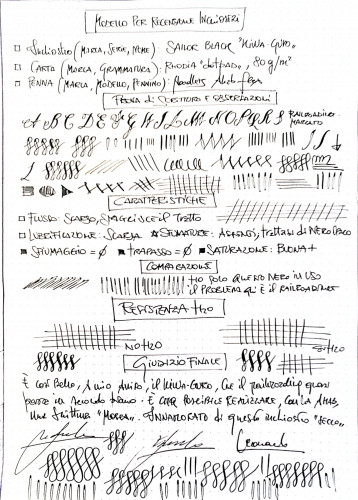 MODELLO PER RECENSIONE INCHIOSTRI
INCHIOSTRO (MARCA, SERIE, NOME): SAILOR BLACK "KIWA-GURO"
CARTA (MARCA, GRAMMATURA): RHODIA "dotPAD", 80 g/m²
PENNA (MARCA, MODELLO, PENNINO): Noodlers Ahab flex
PROVA DI SCRITTURA E OSSERVAZIONI
A B C D E F G H I L M N O P Q R S RAILROADING MARCATO
CARATTERISTICHE
FLUSSO: SCARSO, SMAGRISCE IL TRATTO
LUBRIFICAZIONE: SCARSA SFUMATURE: ASSENTI, TRATTASI DI NERO
SPIUMAGGIO = Ø TRAPASSO = Ø SATURAZIONE: BUONA +
COMPARAZIONE
HO SOLO QUESTO NERO IN USO
IL PROBLEMA QUI È IL RAILROADING
RESISTENZA H2O
NO H2O
SI H2O
GIUDIZIO FINALE
È così bello, Amico Amico, il KIWA-GURO, che il railroading quasi
passa in secondo piano. È possibile realizzare, con la Ahab,
una scrittura "MODERNA". INNAMORATO di questo inchiostro "SECCO".
Leonardo